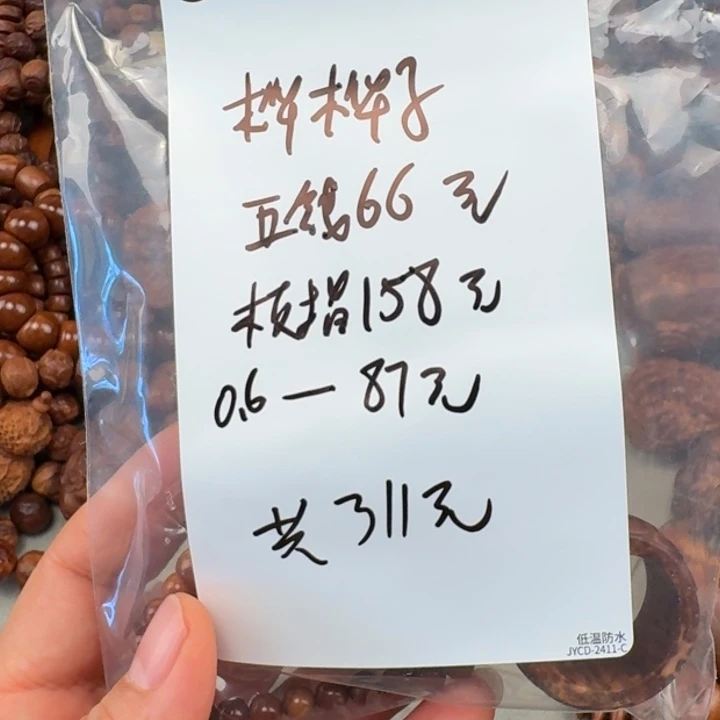 桦木桦子
五钱66元
核指158元
0.6—87元
共311元
低温防水
JYCD-2411-C